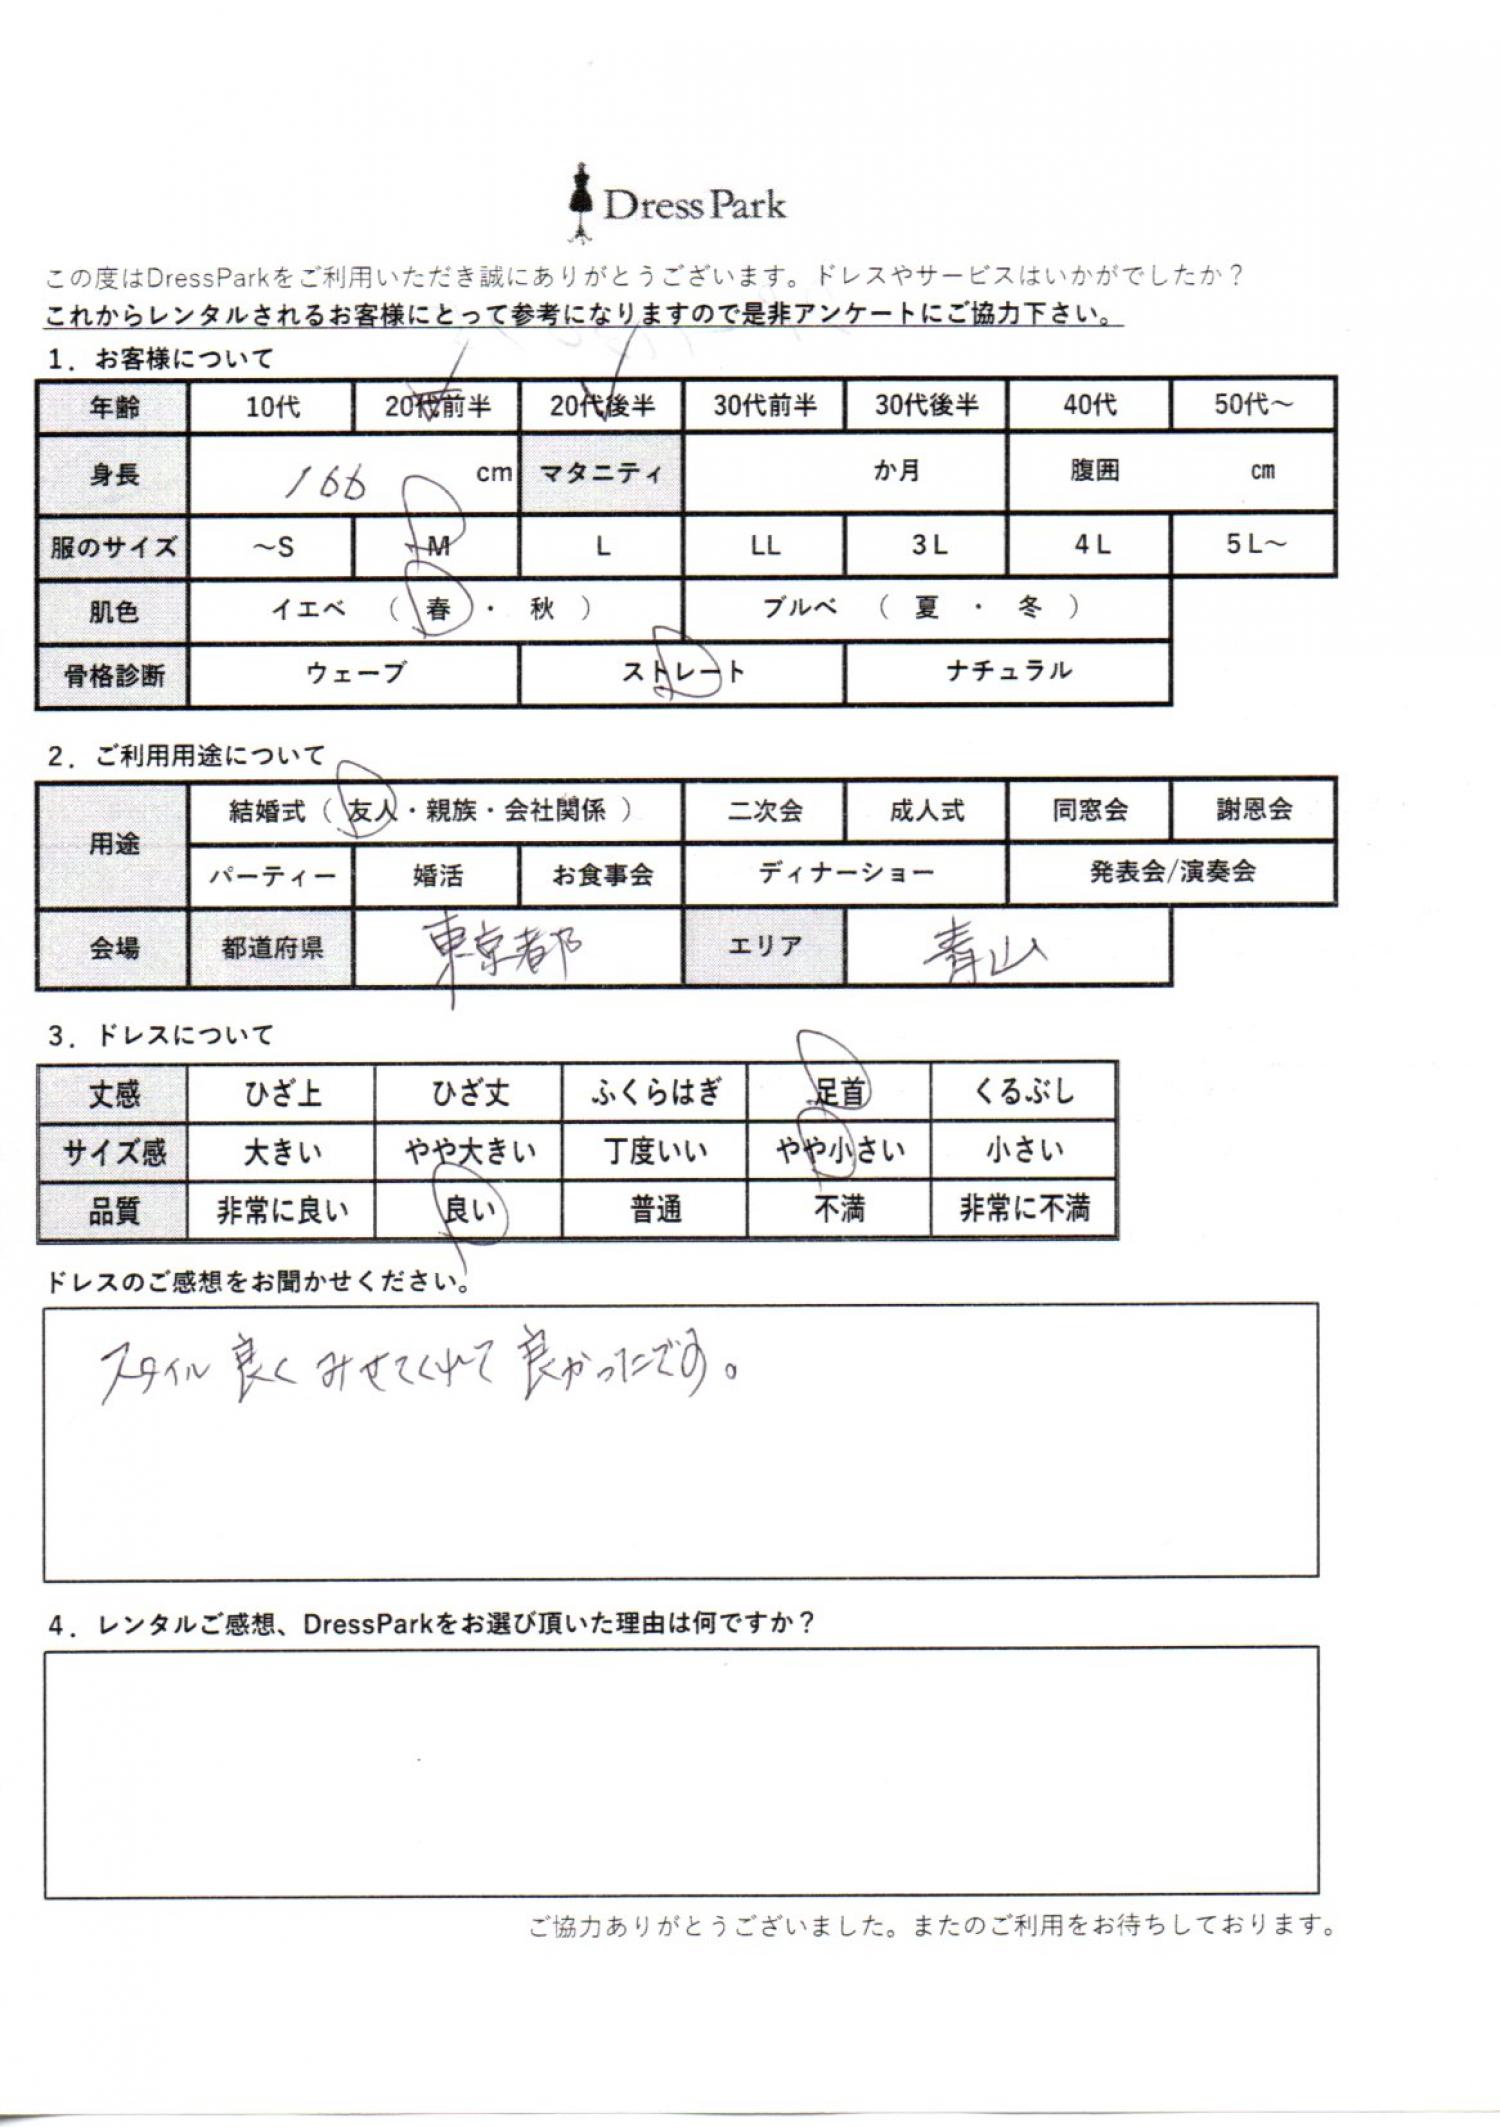 Dress Park
この度はDressParkをご利用いただき誠にありがとうございます。ドレスやサービスはいかがでしたか？
これからレンタルされるお客様にとって参考になりますので是非アンケートにご協力下さい。
1．お客様について
年齢 10代 20代前半 20代後半 30代前半 30代後半 40代 50代～
身長 166 cm マタニティ か月 腹囲 cm
服のサイズ ～S M L LL 3L 4L 5L～
肌色 イエベ （ 春 ・ 秋 ） ブルベ （ 夏 ・ 冬 ）
骨格診断 ウェーブ ストレート ナチュラル
2．ご利用用途について
用途 結婚式（ 友人・親族・会社関係 ） 二次会 成人式 同窓会 謝恩会
パーティー 婚活 お食事会 ディナーショー 発表会/演奏会
会場 都道府県 東京都 エリア 青山
3．ドレスについて
丈感 ひざ上 ひざ丈 ふくらはぎ 足首 くるぶし
サイズ感 大きい やや大きい 丁度いい やや小さい 小さい
品質 非常に良い 良い 普通 不満 非常に不満
ドレスのご感想をお聞かせください。
スタイル良くみせてくれて良かったです。
4．レンタルご感想、DressParkをお選び頂いた理由は何ですか？
ご協力ありがとうございました。またのご利用をお待ちしております。